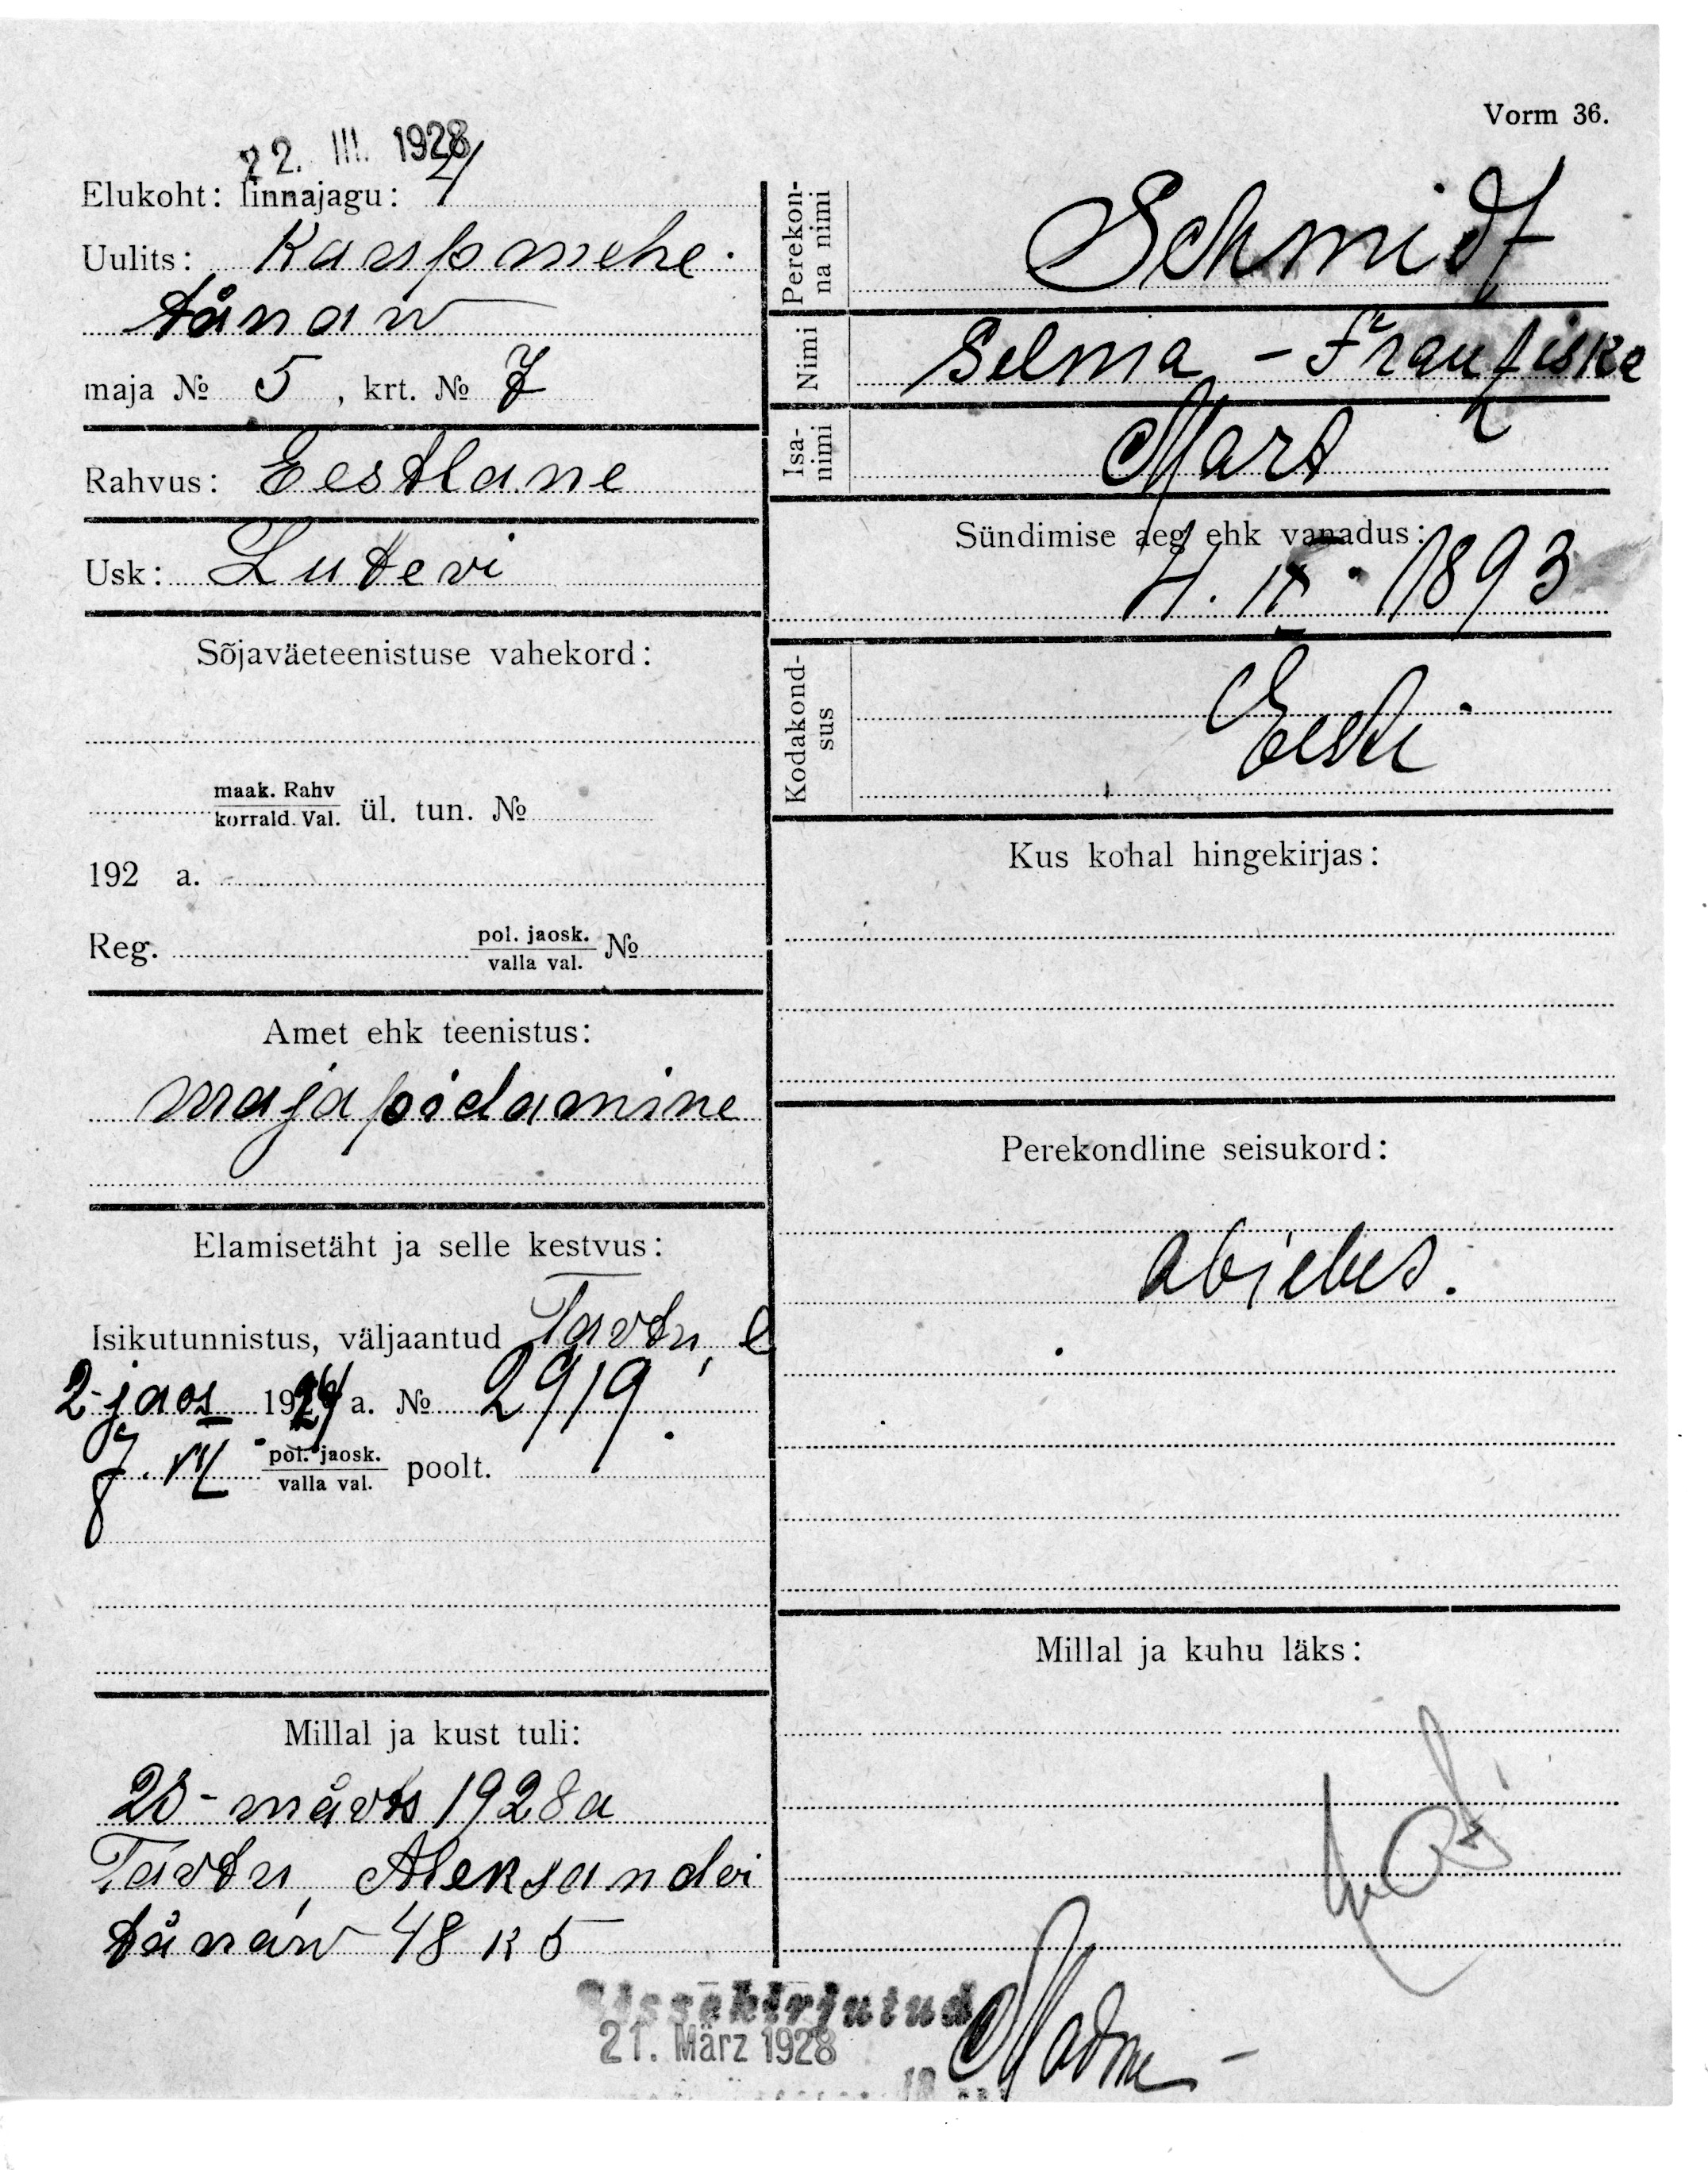 Vorm 36.
22. III. 1928
Elukoht: linnajagu: 4
Uulits: Kaupmehe
tänaw
maja № 5, krt. № 7
Rahvus: Eestlane
Usk: Luteri
Sõjaväeteenistuse vahekord:
maak. Rahv
korrald. Val. ül. tun. №
192 a.
Reg. pol. jaosk.
valla val. №
Amet ehk teenistus:
majapidamine
Elamisetäht ja selle kestvus:
Isikutunnistus, väljaantud Tartu,
2-jaos 1924 a. № 2919.
7. VII pol. jaosk.
valla val. poolt.
Millal ja kust tuli:
20-märts 1928 a
Tartu, Aleksandri
tänaw 48 k 5
Perekon-
na nimi Schmidt
Nimi Selma - Franziska
Isa-
nimi Mart
Sündimise aeg ehk vanadus:
4. IX. 1893
Kodakond-
sus Eesti
Kus kohal hingekirjas:
Perekondline seisukord:
abielus.
Millal ja kuhu läks:
Sissekirjutud
21. März 1928